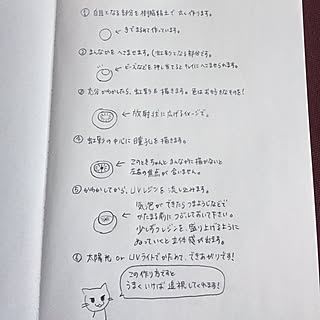 ① 白目となる部分を樹脂粘土で丸く作ります。
← 手でまるめて作っています。
② まんなかをへこませます。(虹彩となる部分です。
← ビーズなどを押し当てるとキレイにへこませられます。
③ 充分かわかしたら、虹彩を描きます。色はお好きなものを!
← 放射状に広げるイメージで。
④ 虹彩の中心に瞳孔を描きます。
← このときちゃんとまんなかに描かないと
左右の焦点が合いません。
⑤ かわかしてから、UVレジンを流し込みます。
← 気泡ができたらつまようじなどで
かたまる前につぶしておいて下さい。
少しずつレジンを盛り上げるように
ぬっていくと立体感が出ます。
⑥ 太陽光 or UVライトでかためて、できあがりです!
この作り方ですと
うまくいけば追視してくれます!